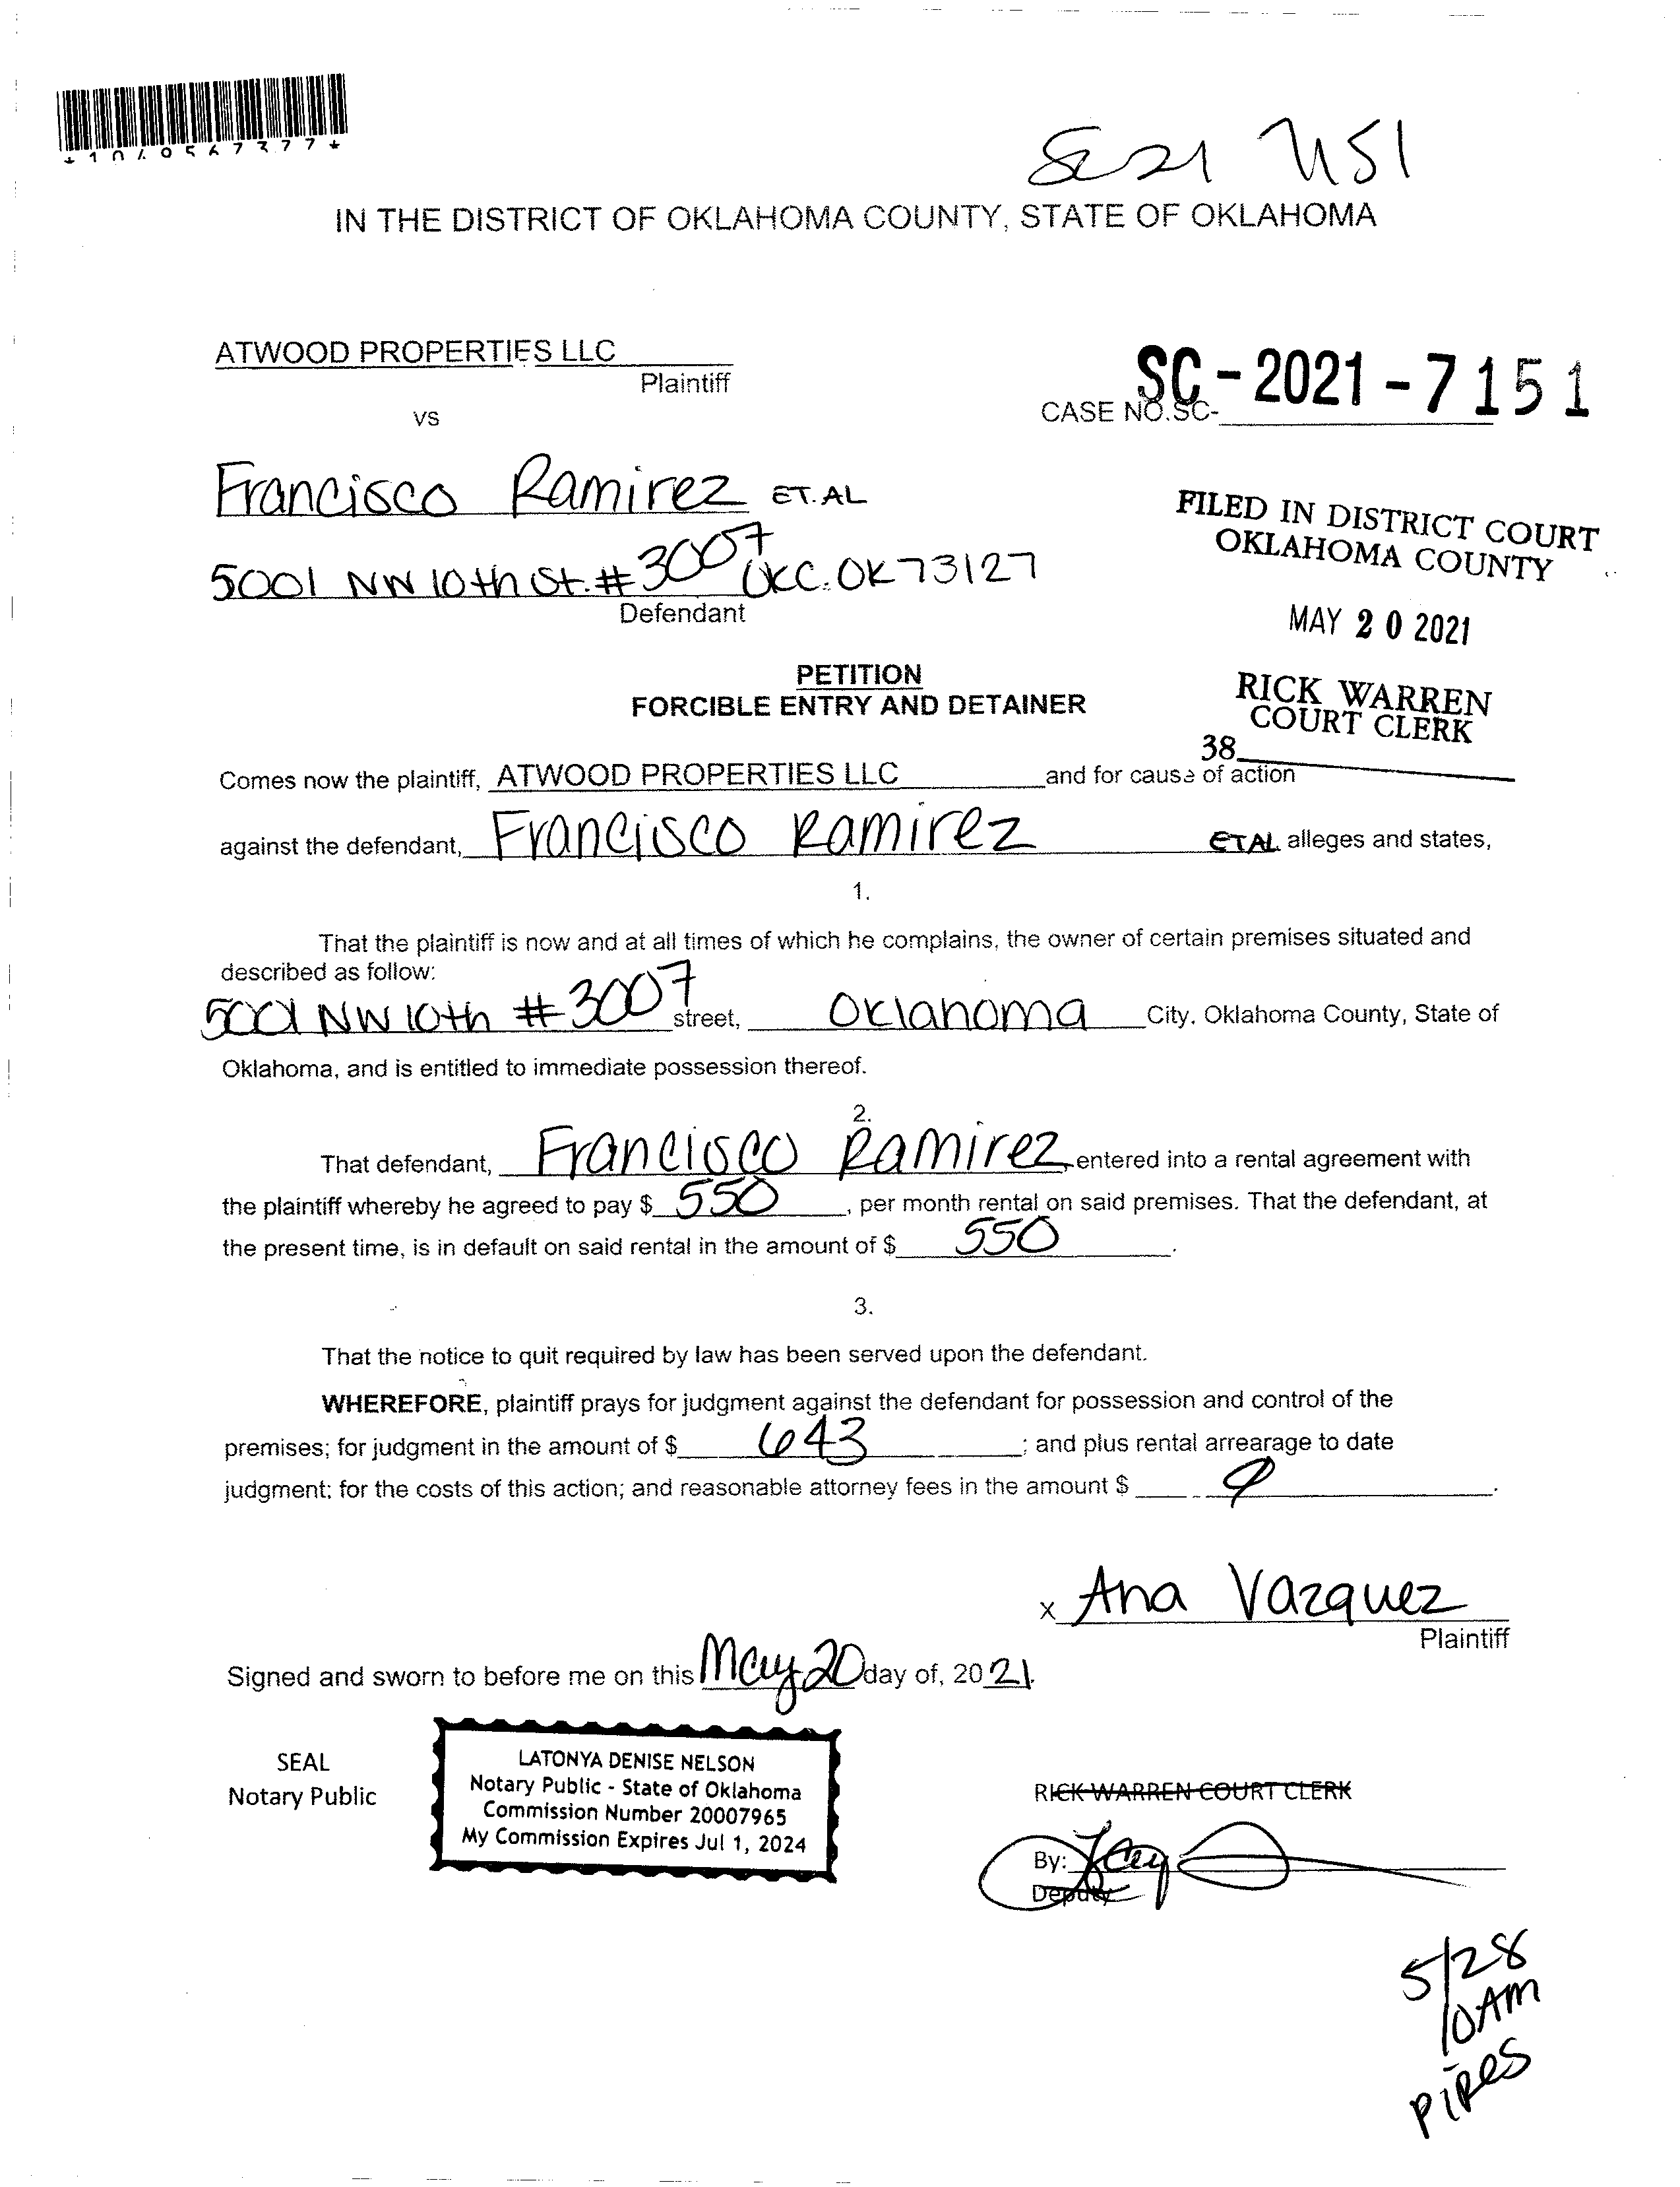 SC21 7151
IN THE DISTRICT OF OKLAHOMA COUNTY, STATE OF OKLAHOMA
ATWOOD PROPERTIES LLC
Plaintiff
VS
SC-2021-7151
CASE NO.SC-
Francisco Ramirez ET. AL
5001 NW 10th St. #3007 OKC. OK 73127
Defendant
FILED IN DISTRICT COURT
OKLAHOMA COUNTY
MAY 20 2021
RICK WARREN
COURT CLERK
38
PETITION
FORCIBLE ENTRY AND DETAINER
Comes now the plaintiff, ATWOOD PROPERTIES LLC and for cause of action
against the defendant, Francisco Ramirez ETAL alleges and states,
1.
That the plaintiff is now and at all times of which he complains, the owner of certain premises situated and
described as follow:
5001 NW 10th #3007 street, Oklahoma City, Oklahoma County, State of
Oklahoma, and is entitled to immediate possession thereof.
2.
That defendant, Francisco Ramirez, entered into a rental agreement with
the plaintiff whereby he agreed to pay $ 550, per month rental on said premises. That the defendant, at
the present time, is in default on said rental in the amount of $ 550.
3.
That the notice to quit required by law has been served upon the defendant.
WHEREFORE, plaintiff prays for judgment against the defendant for possession and control of the
premises; for judgment in the amount of $ 643; and plus rental arrearage to date
judgment; for the costs of this action; and reasonable attorney fees in the amount $ .
x Ana Vazquez
Plaintiff
Signed and sworn to before me on this May 20 day of, 2021.
SEAL
Notary Public
LATONYA DENISE NELSON
Notary Public - State of Oklahoma
Commission Number 20007965
My Commission Expires Jul 1, 2024
RICK WARREN COURT CLERK
By:
Deputy
5/28
10AM
PIRES